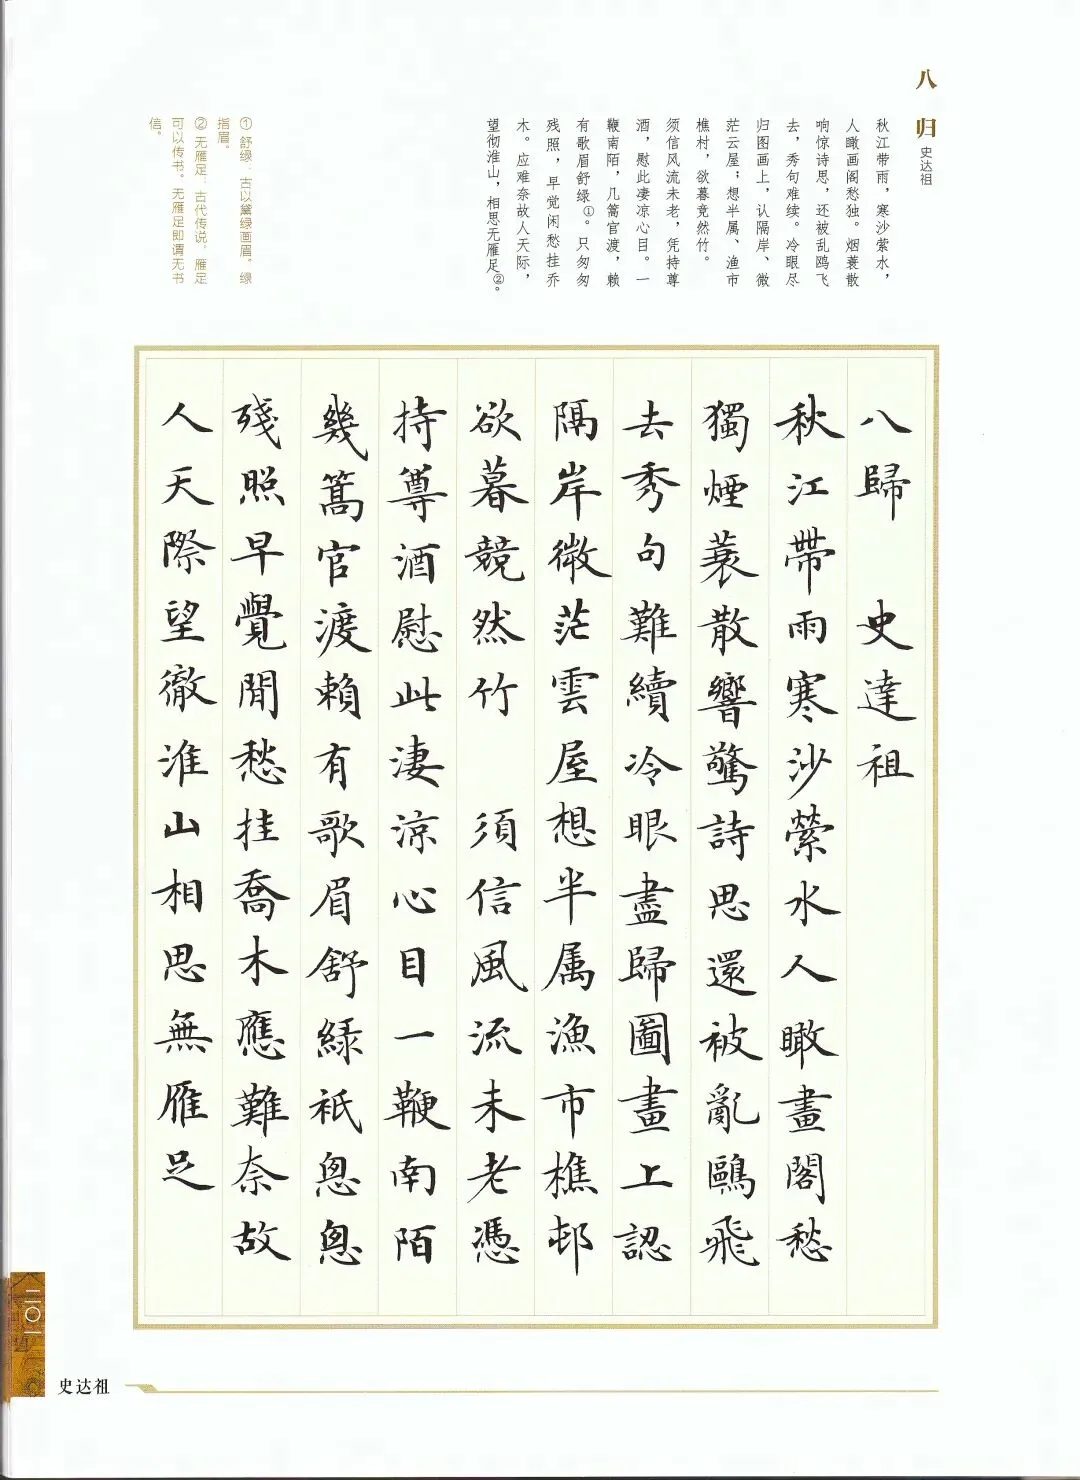 八归
史达祖
秋江带雨，寒沙萦水，
人瞰画阁愁独。烟蓑散
响惊诗思，还被乱鸥飞
去，秀句难续。冷眼尽
归图画上，认隔岸、微
茫云屋；想半属、渔市
樵村，欲暮竞然竹。
须信风流未老，凭持尊
酒，慰此凄凉心目。一
鞭南陌，几篙官渡，赖
有歌眉舒绿①。只匆匆
残照，早觉闲愁挂乔
木。应难奈故人天际，
望彻淮山，相思无雁足②。
①舒绿：古以黛绿画眉。绿
指眉。
②无雁足：古代传说，雁足
可以传书。无雁足即谓无书
信。
八歸 史達祖
秋江帶雨寒沙縈水人瞰畫閣愁
獨煙蓑散響驚詩思還被亂鷗飛
去秀句難續冷眼盡歸圖畫上認
隔岸微茫雲屋想半属漁市樵邨
欲暮競然竹 須信風流未老憑
持尊酒慰此淒涼心目一鞭南陌
幾篙官渡賴有歌眉舒綠衹怱怱
殘照早覺閒愁挂喬木應難奈故
人天際望徹淮山相思無雁足
二〇一
史达祖